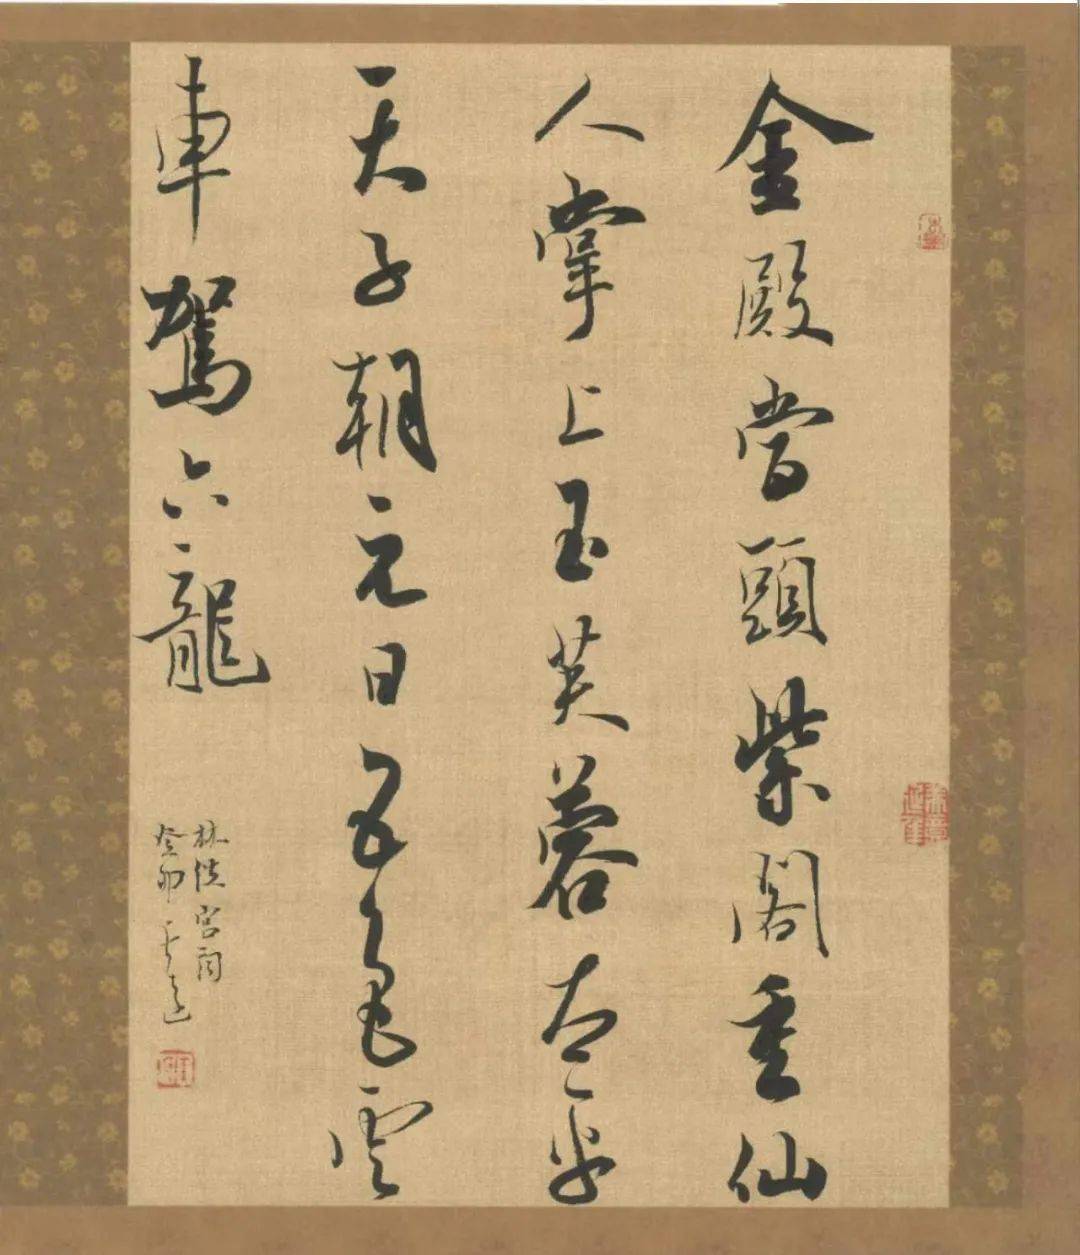 金殿當頭紫閣重仙
人掌上玉芙蓉太平
天子朝元日五色雲
車駕六龍
林洪宮詞
癸卯